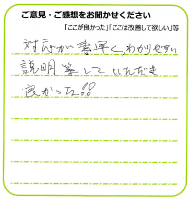 ご意見・ご感想をお聞かせください
「ここが良かった」「ここは改善して欲しい」等
対応が素早く、わかりやすい
説明等していただき
良かった!!